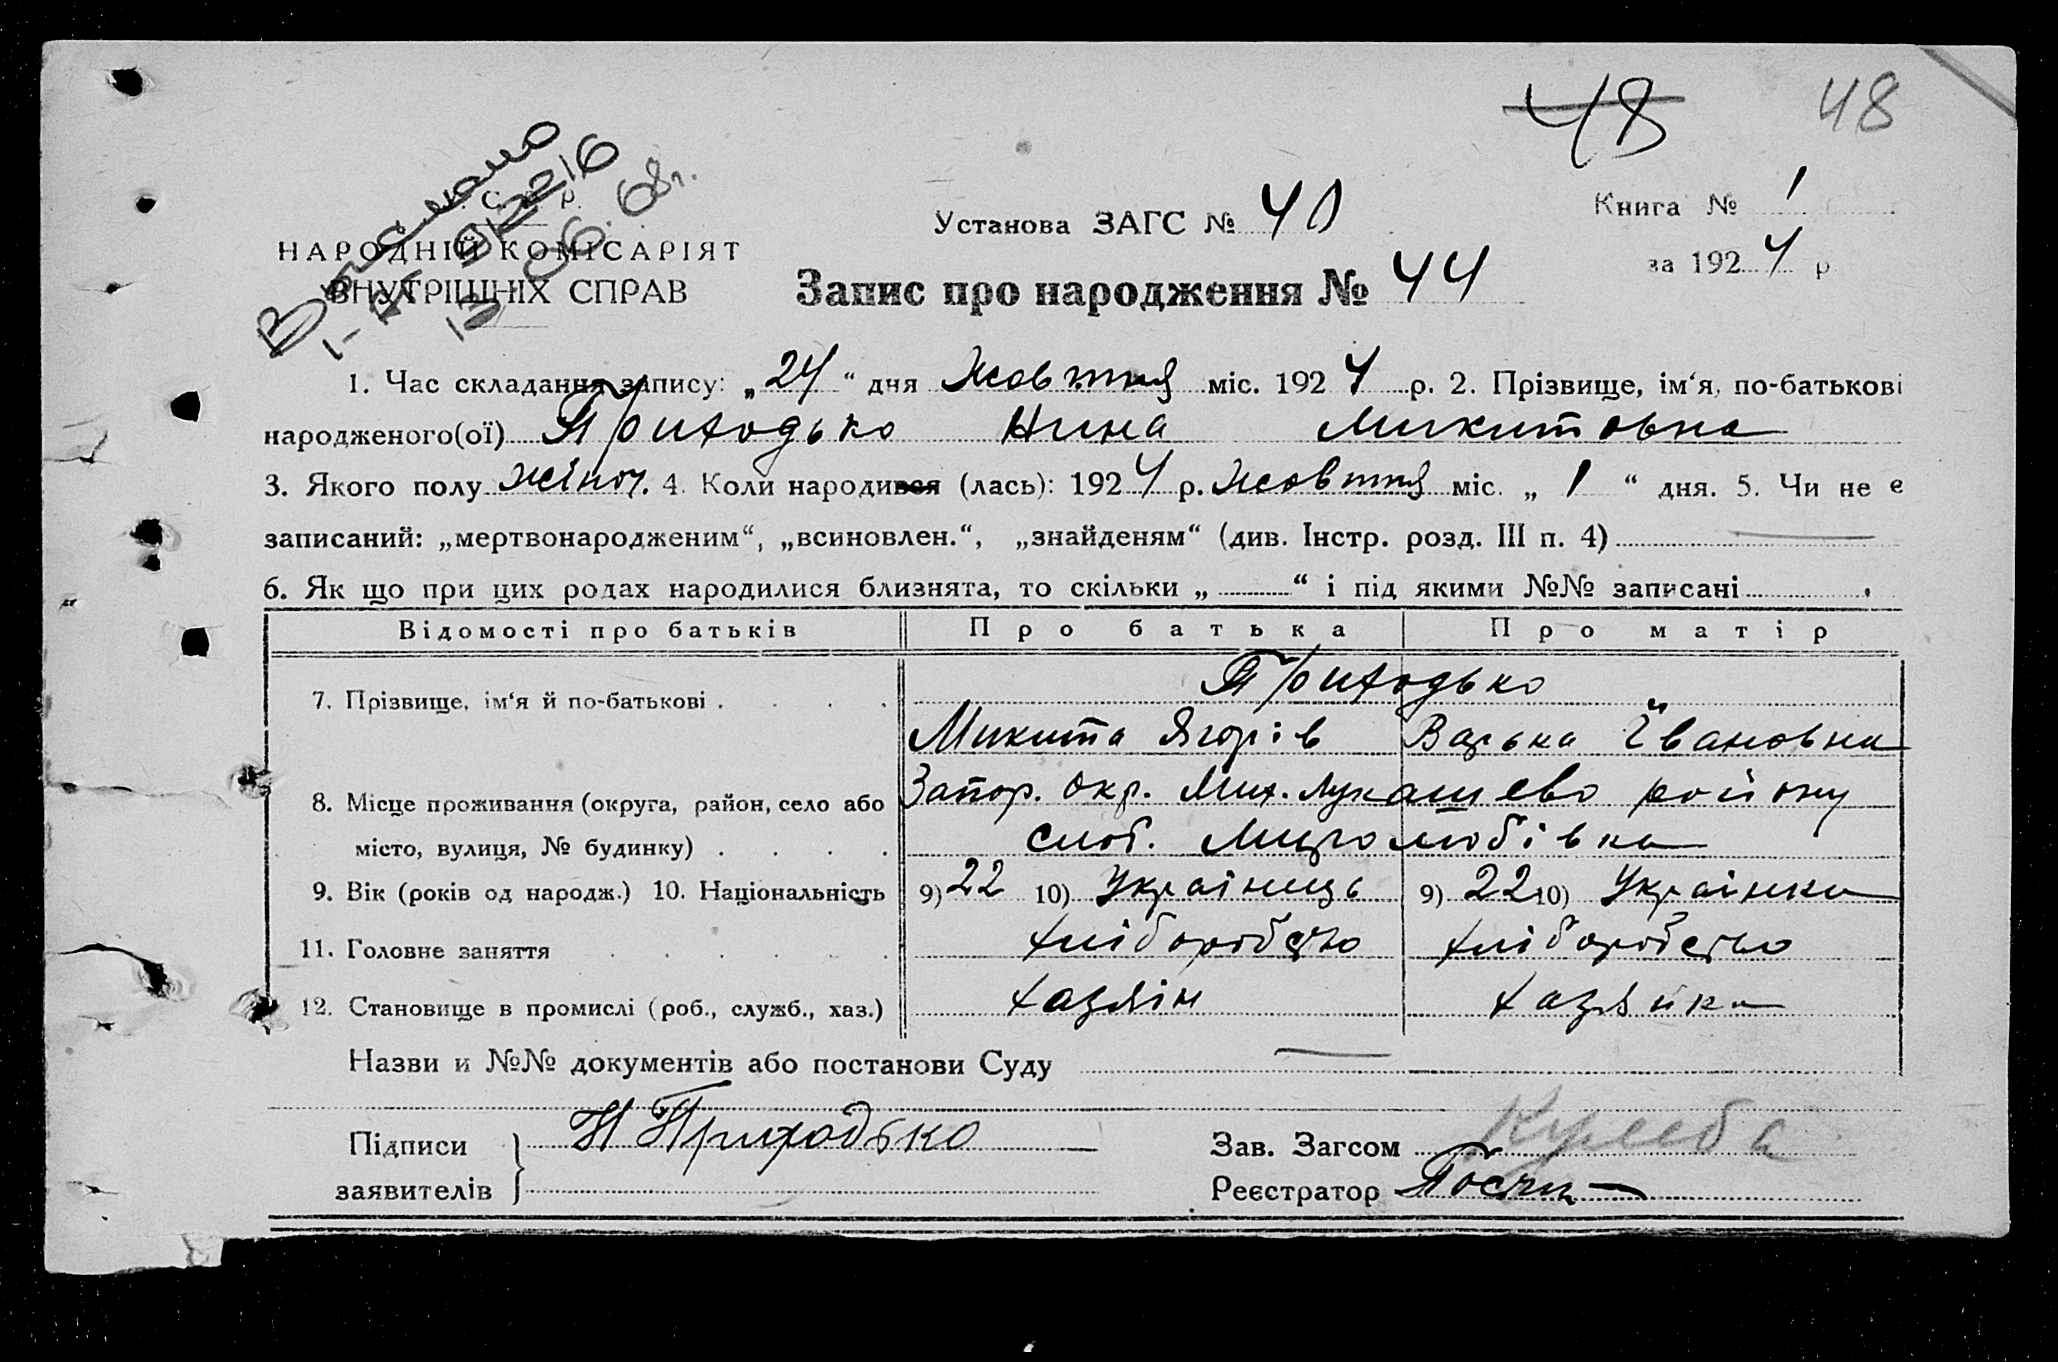 48 48
Вислано
У. С. Р. Р.
13.06.68г.
Установа ЗАГС № 40
Книга № 1
НАРОДНІЙ КОМІСАРІЯТ
ВНУТРІШНІХ СПРАВ
за 1924 р
Запис про народження № 44
1. Час складання запису: „24“ дня Жовтня міс. 1924 р. 2. Прізвище, ім‘я, по-батькові
народженого(ої) Приходько Нина Микитовна
3. Якого полу жіноч. 4. Коли народився (лась): 1924 р. Жовтня міс. „ 1 “ дня. 5. Чи не є
записаний: „мертвонародженим“, „всиновлен.“, „знайденям“ (див. Інстр. розд. III п. 4)
6. Як що при цих родах народилися близнята, то скільки „ “ і під якими №№ записані
Відомості про батьків Про батька Про матір
7. Прізвище, ім‘я й по-батькові Приходько
Микита Ягорів Варька Івановна
8. Місце проживання (округа, район, село або Запор. окр. Мих. Лукашево району
місто, вулиця, № будинку) слоб. Миролюбівка
9. Вік (років од народж.) 10. Національність 9) 22 10) Українець 9) 22 10) Українка
11. Головне заняття хліборобство хліборобство
12. Становище в промислі (роб., служб., хаз.) хазяін хазяйка
Назви и №№ документів або постанови Суду
Підписи Н Приходько Зав. Загсом Кулеба
заявителів Реєстратор